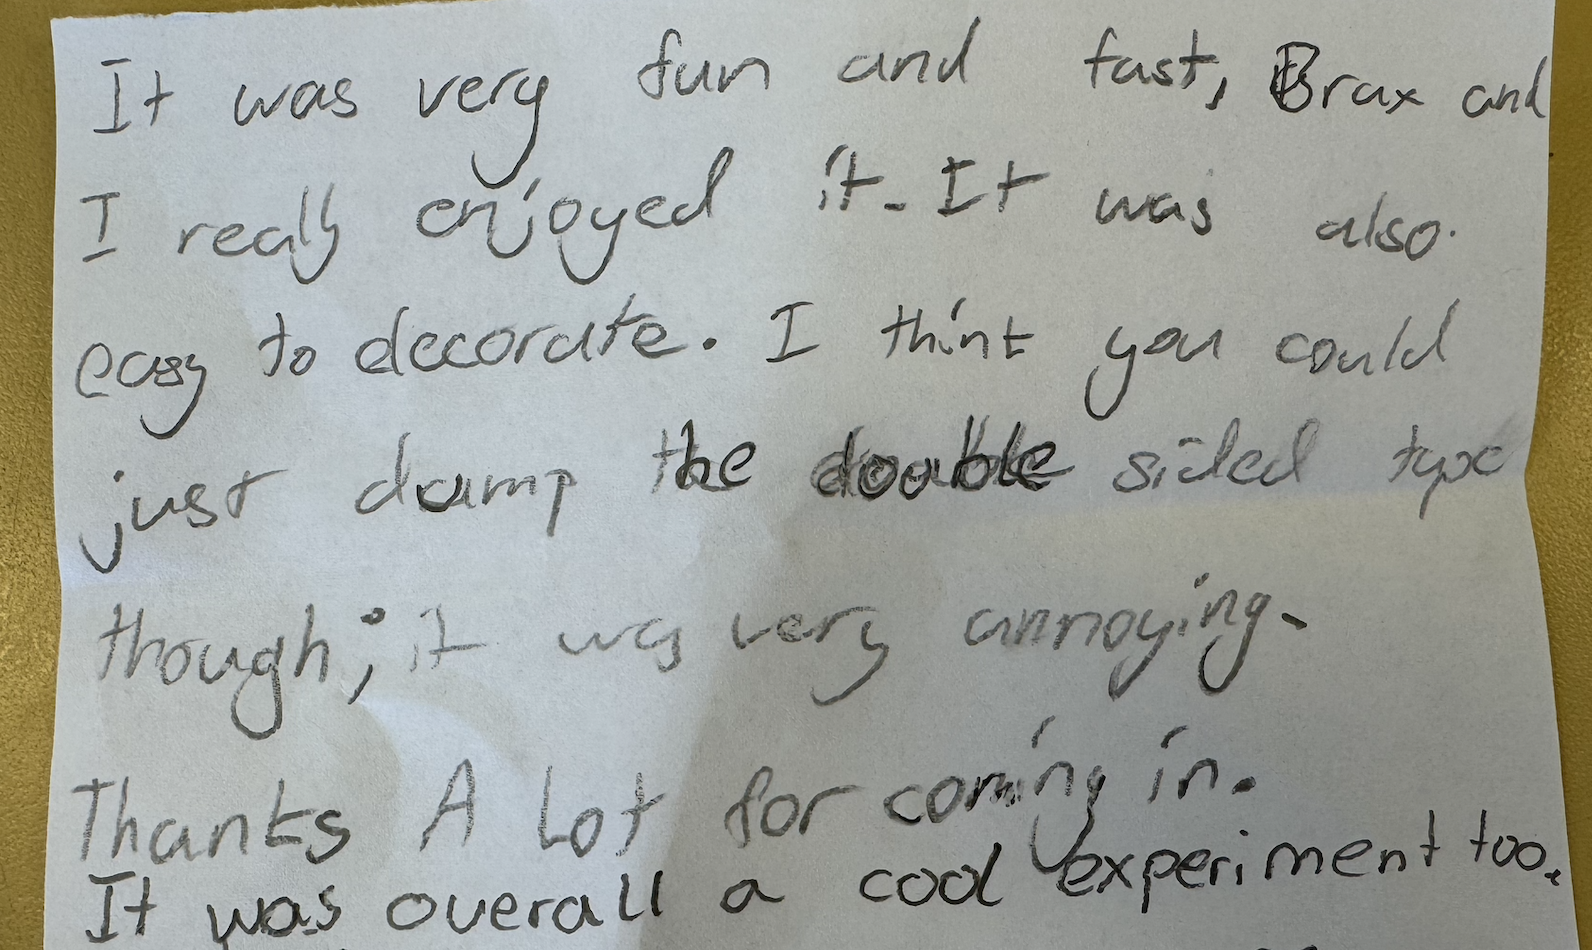 It was very fun and fast, Brax and
I really enjoyed it. It was also
easy to decorate. I think you could
just dump the double sided type
though; it was very annoying.
Thanks A Lot for coming in.
It was overall a cool experiment too.